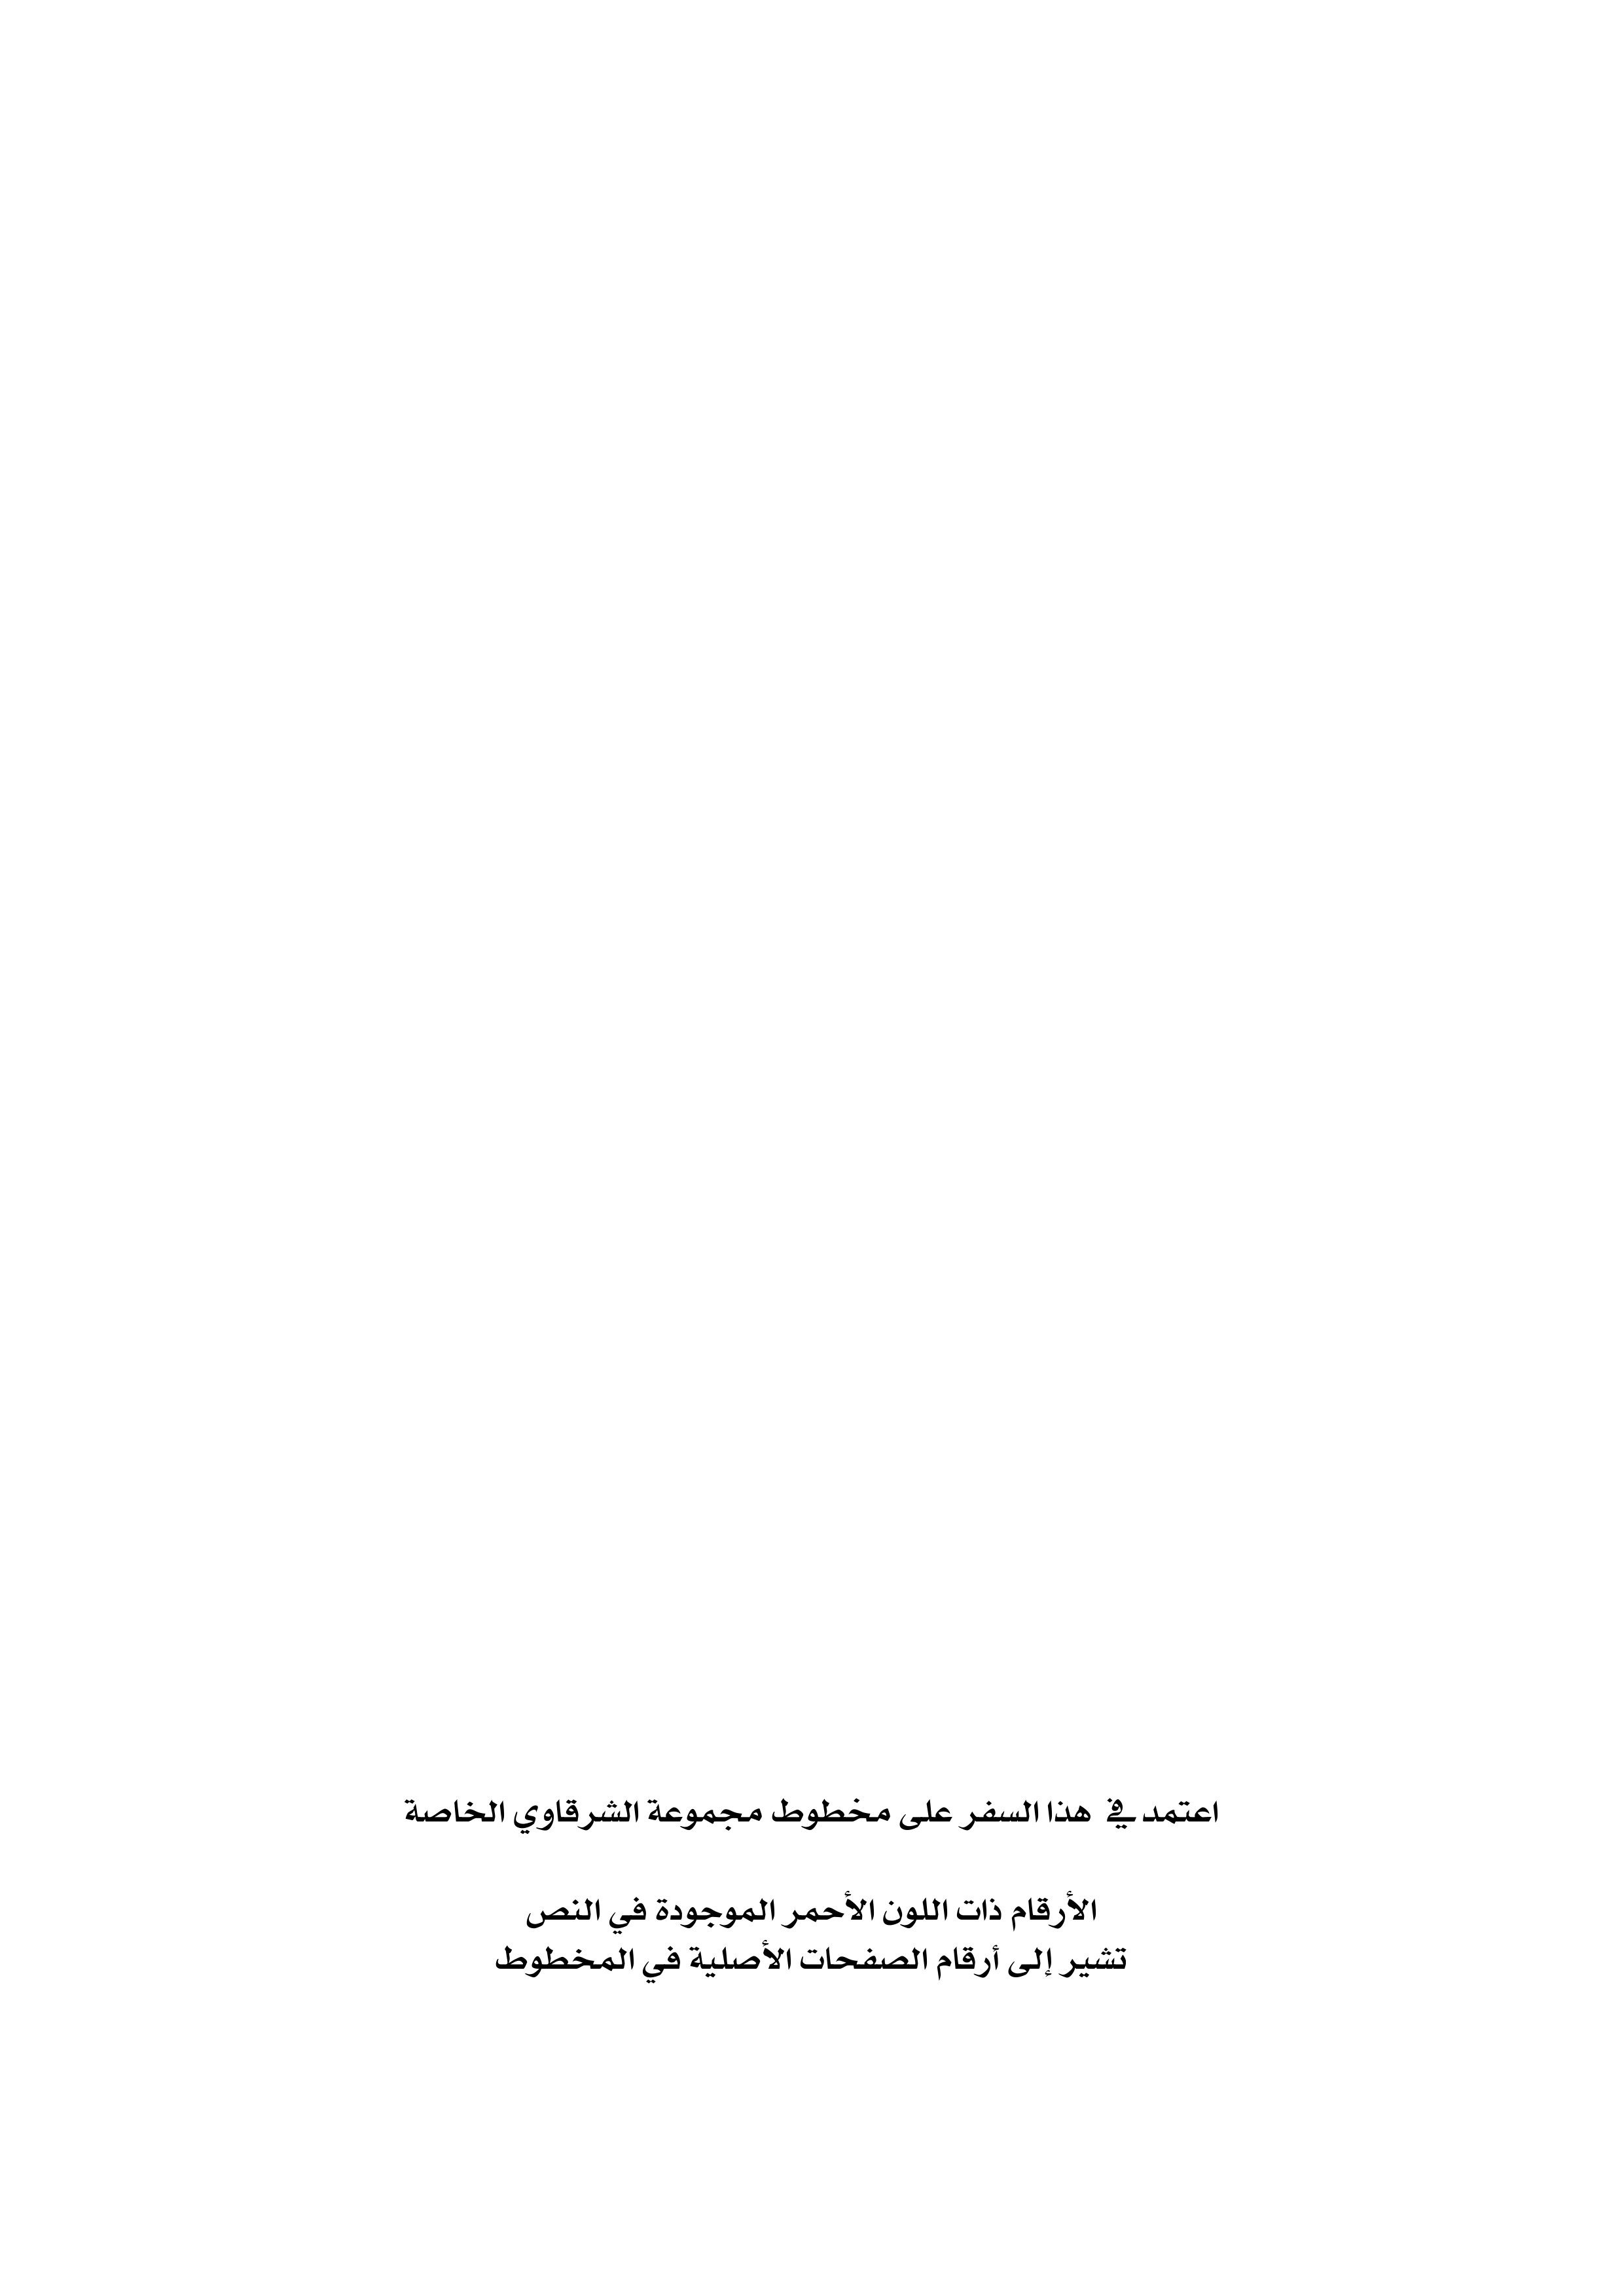 اعتمد في هذا السفر على مخطوط مجموعة الشرقاوي الخاصة
الأرقام ذات اللون الأحمر الموجودة في النص
تشير إلى أرقام الصفحات الأصلية في المخطوط